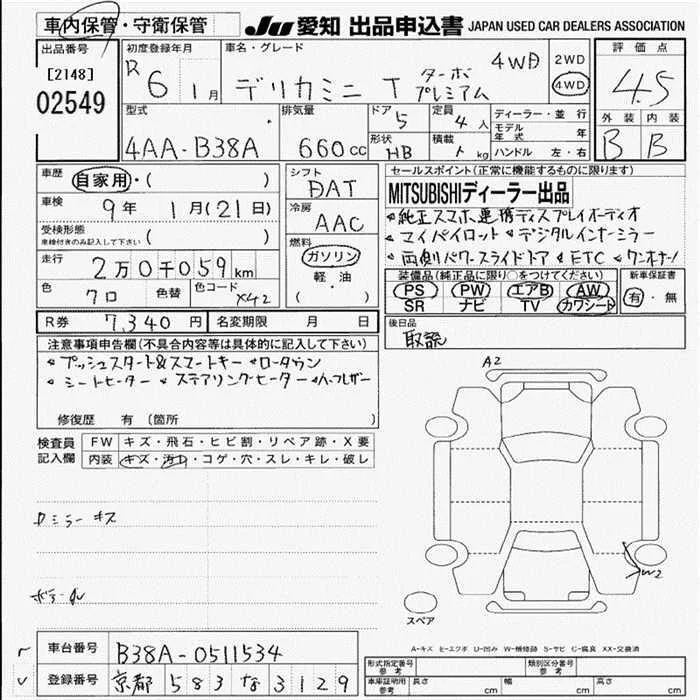 車内保管・守衛保管
JU 愛知 出品申込書 JAPAN USED CAR DEALERS ASSOCIATION
出品番号
[2148]
02549
初度登録年月
R 6 1月
車名・グレード
デリカミニ T ターボ プレミアム 4WD
2WD
4WD
評価点
4.5
外装 内装
B B
型式
4AA-B38A
排気量
660cc
ドア 5
形状 HB
定員 4人
積載 kg
ディーラー・並行
モデル年式 年
ハンドル 左・右
車歴 自家用・( )
車検 9年 1月(21日)
受検形態
車検付きのみ記入して下さい ( )
走行 2万0千059km
色 クロ 色替 色コード X42
シフト
DAT
冷房
AAC
燃料
ガソリン
軽・油
( )
セールスポイント(正常に機能するものに限ります)
MITSUBISHIディーラー出品
純正スマホ連携ディスプレイオーディオ
マイパイロット デジタルインナーミラー
両側パワースライドドア ETC ワンオーナー
装備品(純正品に限り○をつけてください)
PS PW エアB AW
SR ナビ TV カワシート
新車保証書
有・無
R券 7,340円 名変期限 月 日
後日品
取説
注意事項申告欄(不具合内容等は具体的に記入して下さい)
プッシュスタート&スマートキー ロータウン
シートヒーター ステアリングヒーター
修復歴 有 (箇所 )
検査員記入欄
FW キズ・飛石・ヒビ割・リペア跡・X要
内装 キズ・汚れ・コゲ・穴・スレ・キレ・破レ
A2
W2
スペア
A-キズ E-エクボ U-凹み W-補修跡 S-サビ C-腐食 XX-交換済
車台番号 B38A-0511534
登録番号 京都 583 な 3129
形式指定番号 参考
類別区分番号 参考
車庫証明用 参考 長さ cm 幅 cm 高さ cm